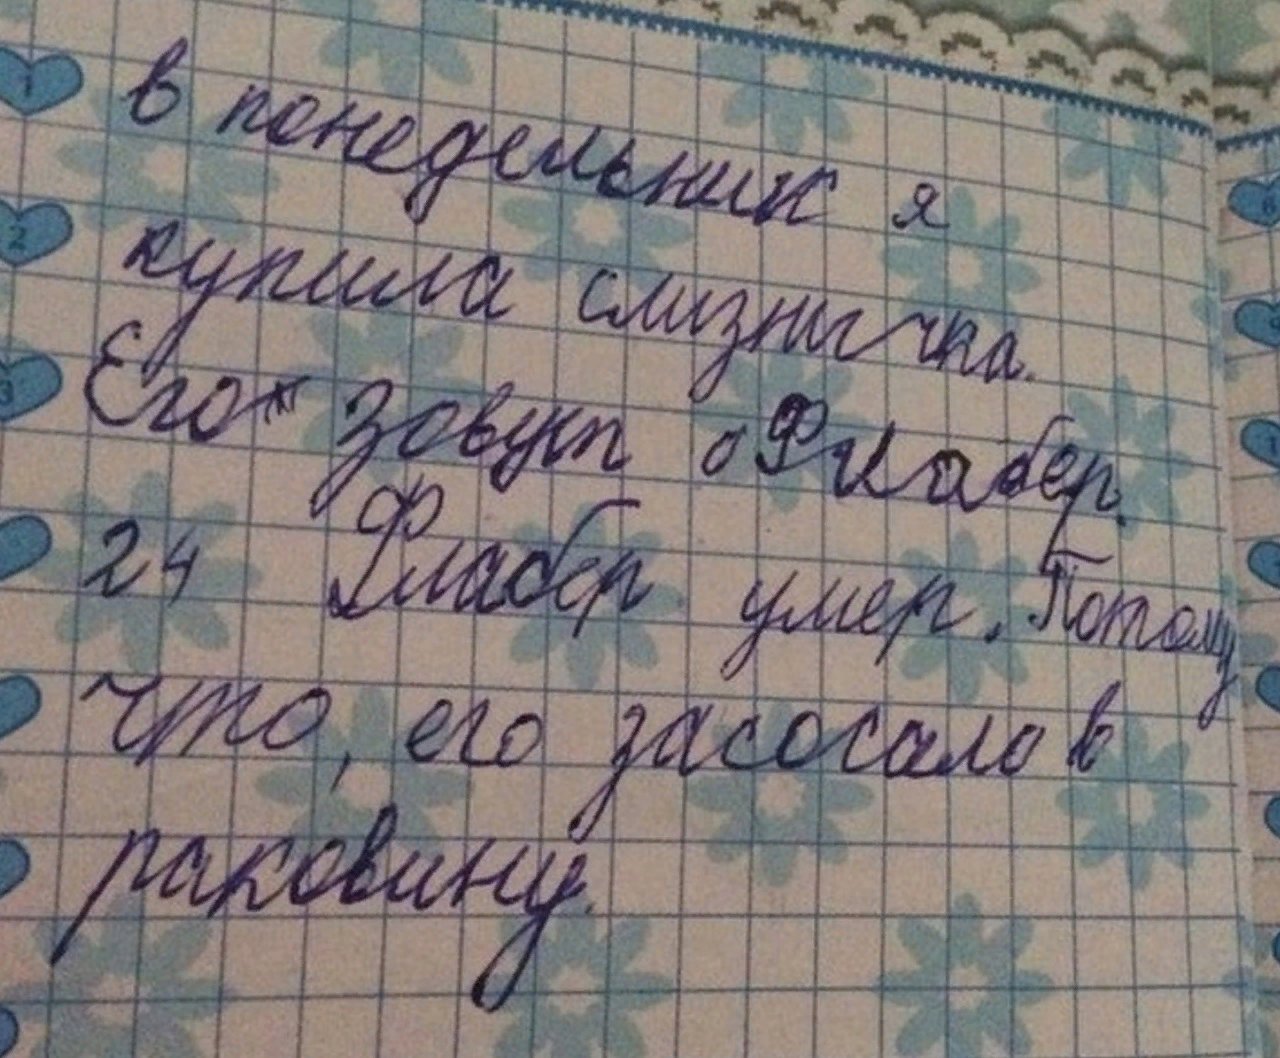 в понедельник я
купила слизничка.
Его зовут Флабер.
24 Флабер умер. Потому
что, его засосало в
раковину.